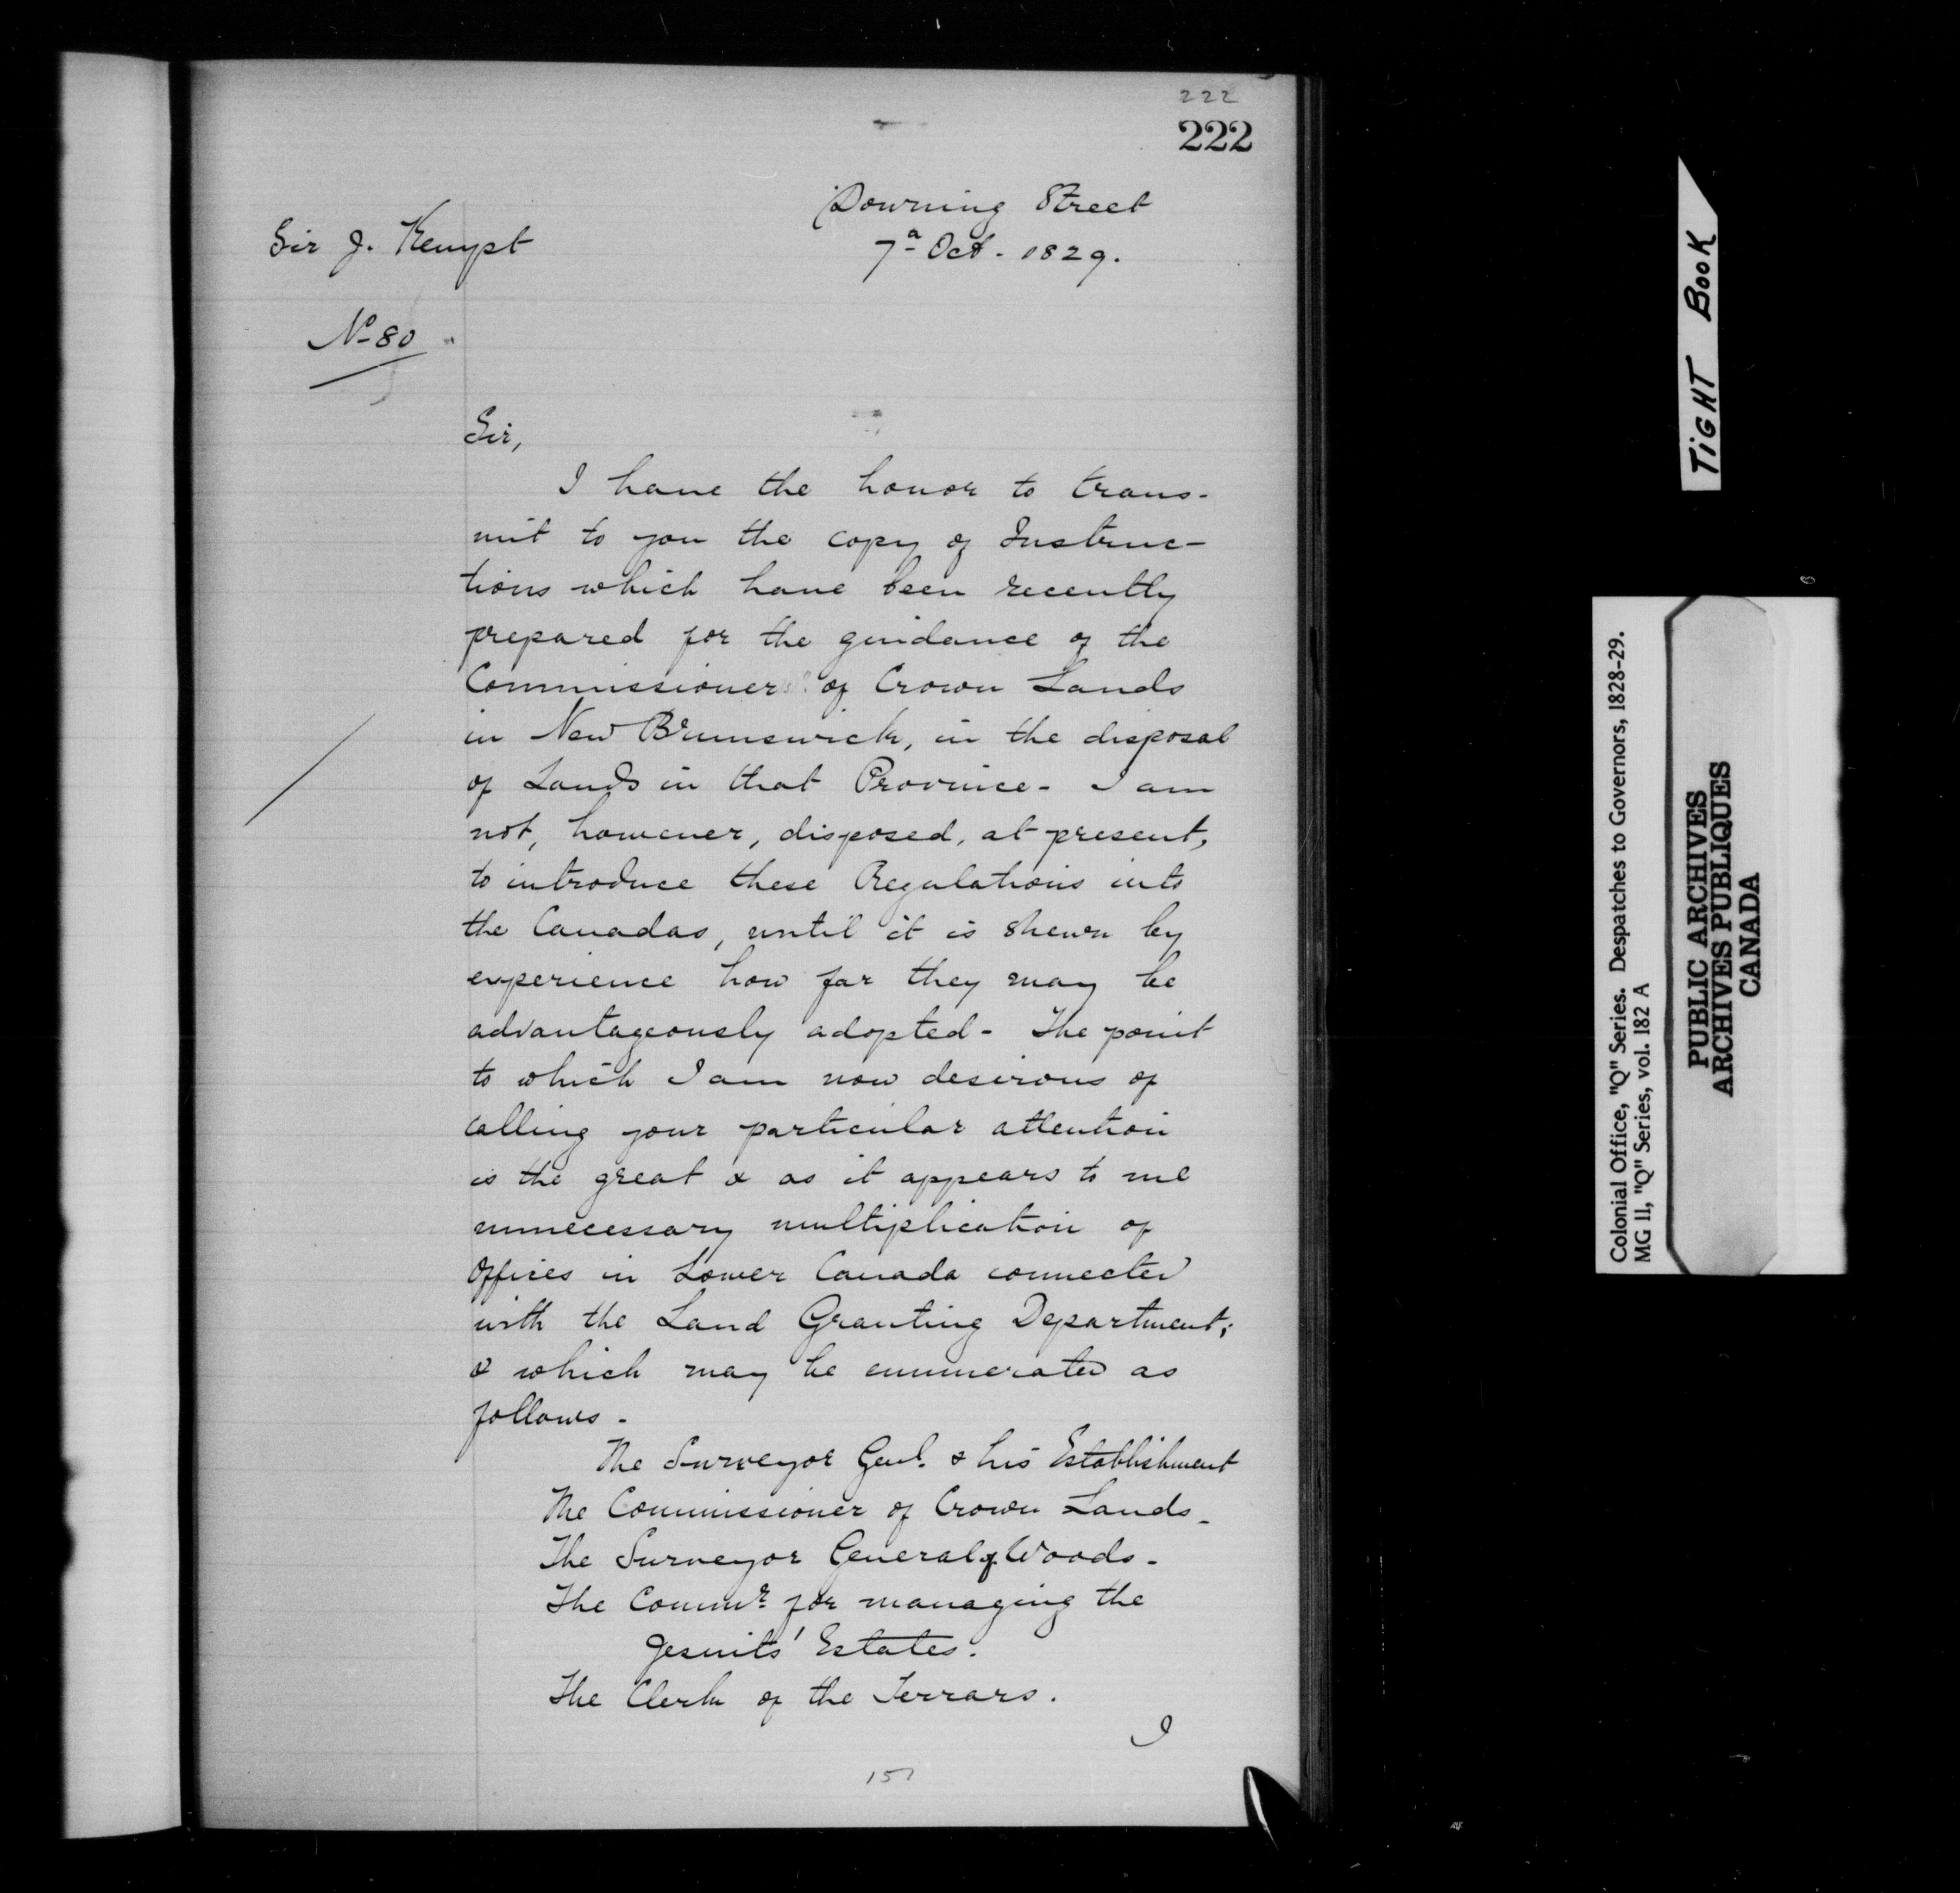 222
222
Downing Street
7ᵃ Oct. 1829.
Sir J. Kempt
Nº 80.
Sir,
I have the honor to trans-
mit to you the copy of Instruc-
tions which have been recently
prepared for the guidance of the
Commissioner of Crown Lands
in New Brunswick, in the disposal
of Lands in that Province - I am
not, however, disposed, at present,
to introduce these Regulations into
the Canadas, until it is shewn by
experience how far they may be
advantageously adopted - The point
to which I am now desirous of
calling your particular attention
is the great & as it appears to me
unnecessary multiplication of
Offices in Lower Canada connected
with the Land Granting Department;
& which may be enumerated as
follows -
The Surveyor Genl. & his Establishment
The Commissioner of Crown Lands -
The Surveyor General of Woods -
The Commʳ for managing the
Jesuits' Estates.
The Clerk of the Terrars.
I
151
TIGHT BOOK
Colonial Office, "Q" Series. Despatches to Governors, 1828-29.
MG 11, "Q" Series, vol. 182 A
PUBLIC ARCHIVES
ARCHIVES PUBLIQUES
CANADA